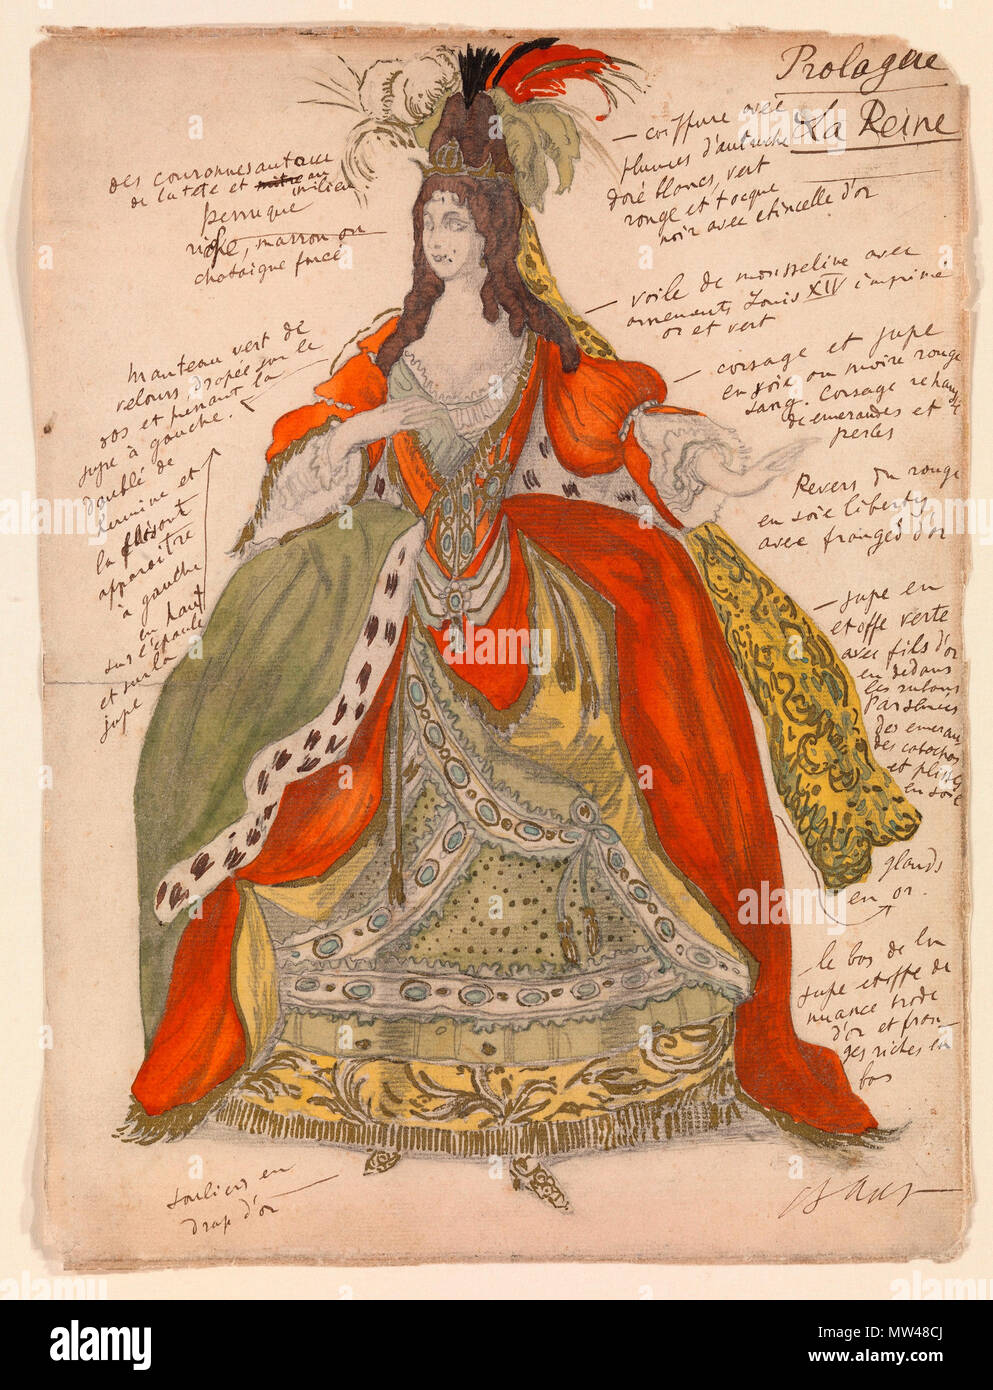 Prologue
La Reine
— coiffure avec
plumes d'autruche
doré blancs, vert
rouge et toque
noir avec etincelle d'or
— voile de mousseline avec
ornements Louis XIV imprimé
or et vert
— corsage et jupe
en soie ou moire rouge
sang. Corsage rehaussé
d'emeraudes et
perles
Revers du rouge
en soie liberty
avec franges d'or
— jupe en
etoffe verte
avec fils d'or
en dedans
les rubans
des emerau
des cabochos
et plissés
en soie
glands
en or.
— le bas de la
jupe etoffe de
nuance
d'or et fran
ges riches en
bas
des couronnes autour
de la tête et au milieu
perruque
riche, marron ou
chataigne foncé
manteau vert de
velours drapée sur le
dos et prenant la
jupe à gauche.
doublé de
hermine et
la faisant
apparaître
à gauche
en haut
sur l'épaule
et sur la
jupe
souliers en
drap d'or
Bakst
alamy
Image ID: MW48CJ
www.alamy.com